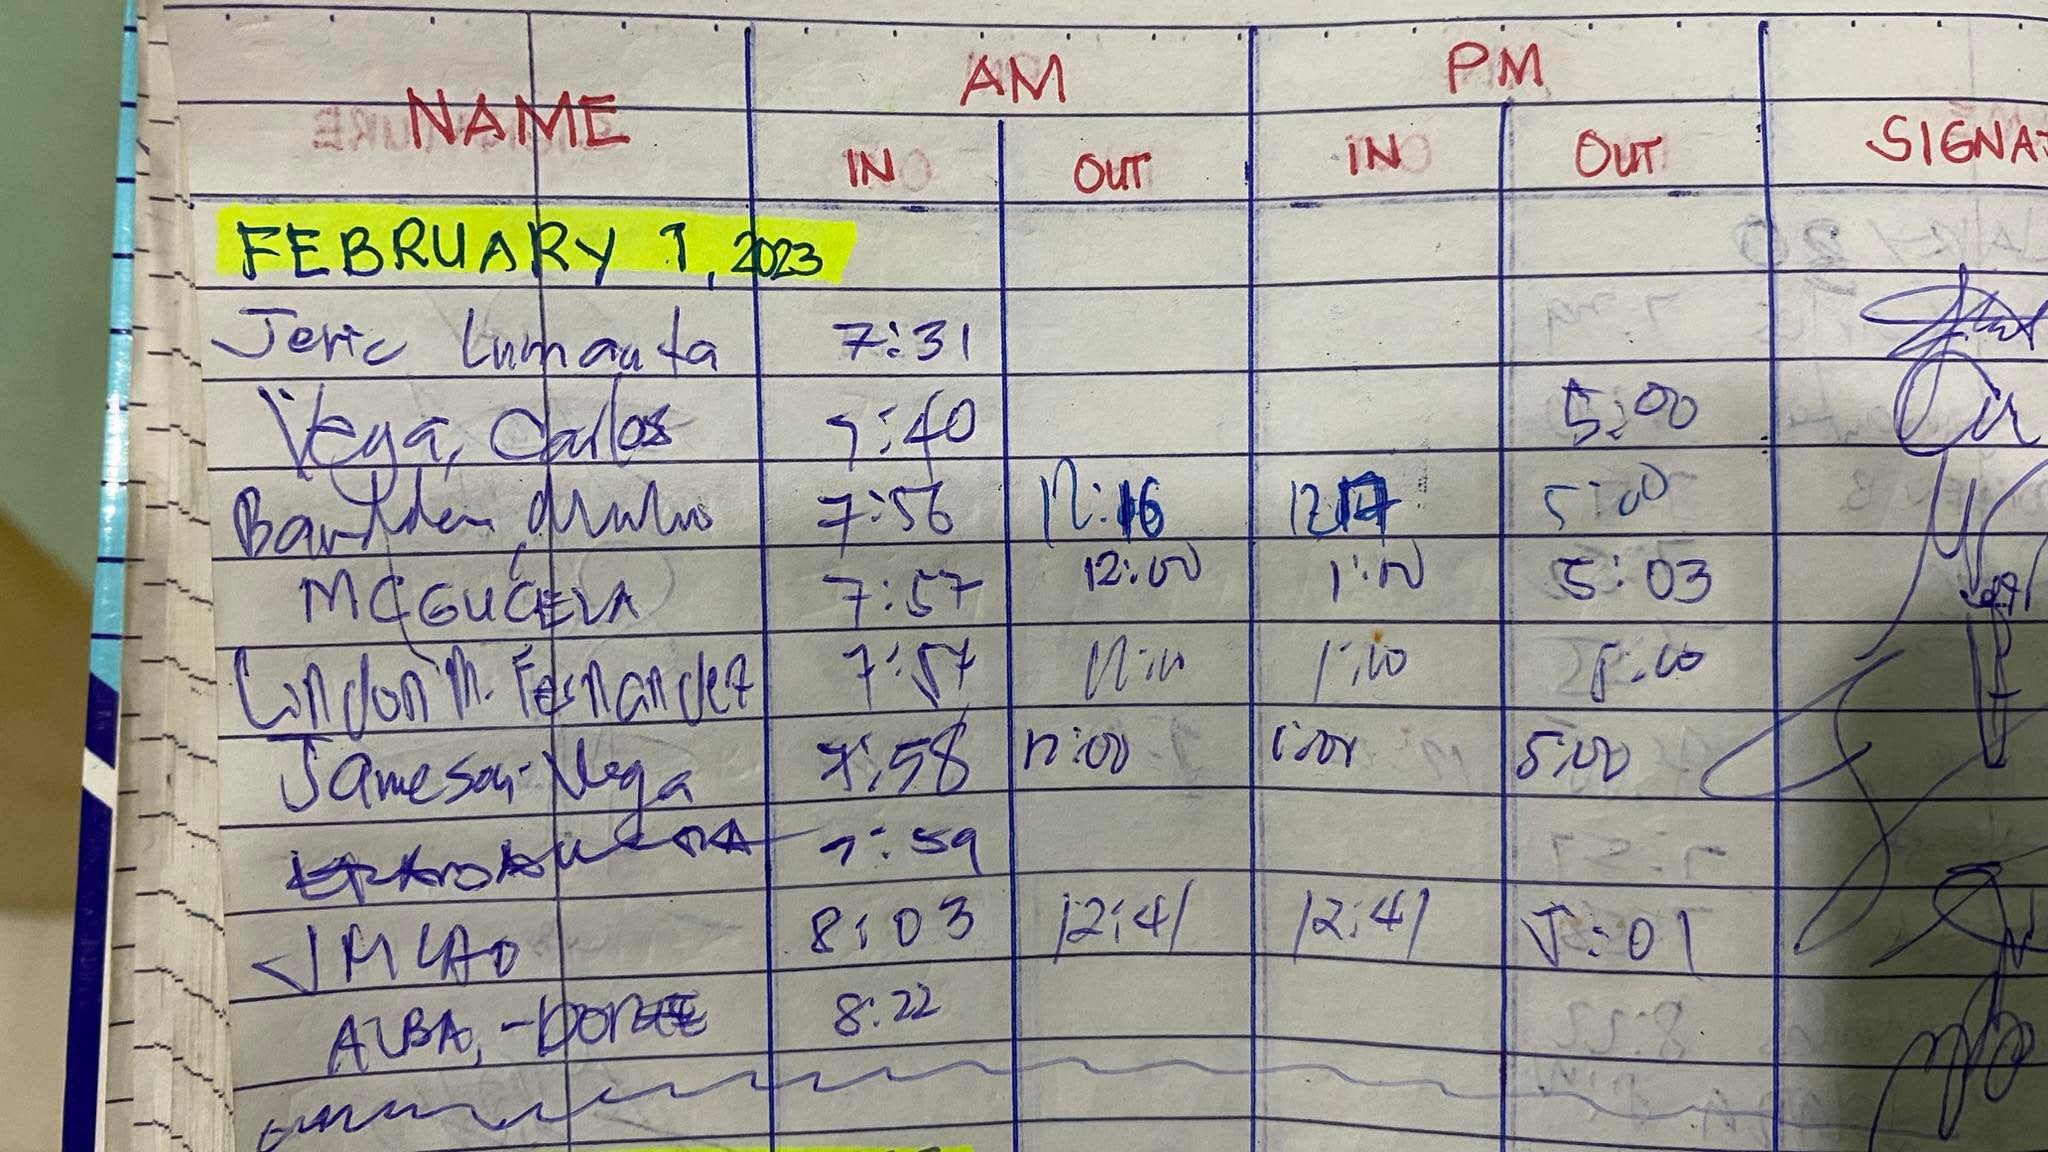 NAME AM PM
IN OUT IN OUT SIGNAT
FEBRUARY 1, 2023
Jeric Lumauta 7:31
Vega, Carlos 7:40 5:00
7:56 12:16 12:17 5:00
7:57 12:00 1:00 5:03
Lindon M. Fernandez 7:57 1:00 5:00
Jameson Vega 7:58 12:00 1:00 5:00
7:59
JM LAO 8:03 12:41 12:41 5:01
ALBA, 8:22